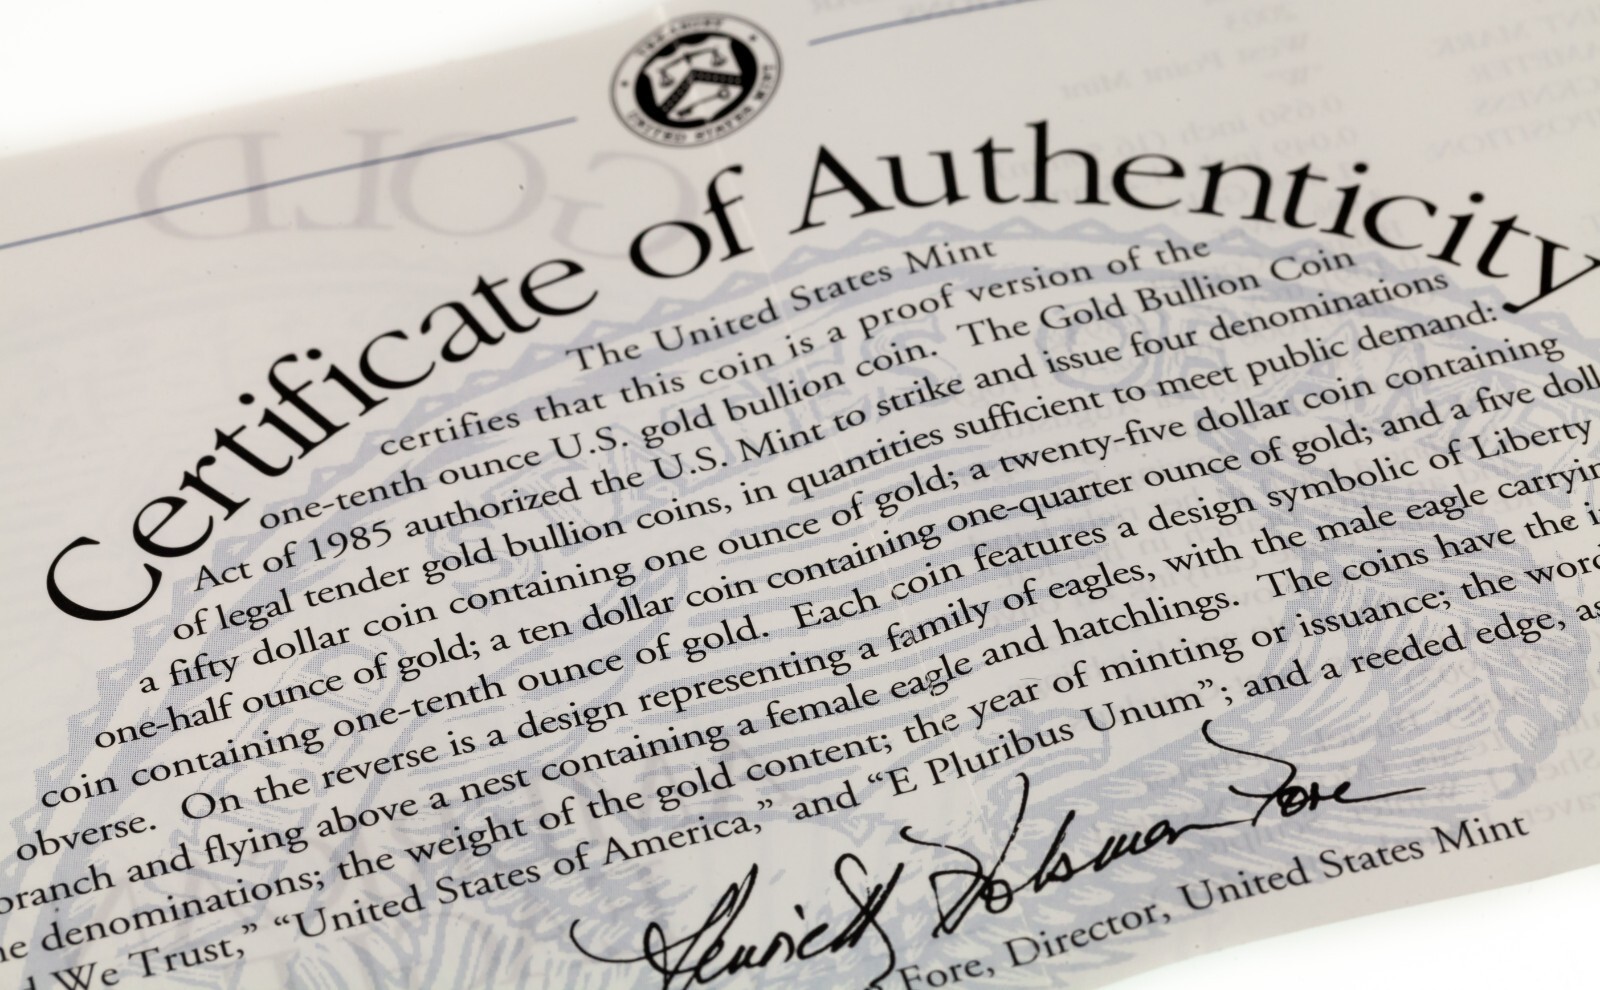 Certificate of Authenticity
The United States Mint
certifies that this coin is a proof version of the
one-tenth ounce U.S. gold bullion coin. The Gold Bullion Coin
Act of 1985 authorized the U.S. Mint to strike and issue four denominations
of legal tender gold bullion coins, in quantities sufficient to meet public demand:
a fifty dollar coin containing one ounce of gold; a twenty-five dollar coin containing
one-half ounce of gold; a ten dollar coin containing one-quarter ounce of gold; and a five doll
coin containing one-tenth ounce of gold. Each coin features a design symbolic of Liberty
obverse. On the reverse is a design representing a family of eagles, with the male eagle carryin
branch and flying above a nest containing a female eagle and hatchlings. The coins have the i
he denominations; the weight of the gold content; the year of minting or issuance; the word
d We Trust," "United States of America," and "E Pluribus Unum"; and a reeded edge, as
Henrietta Holsman Fore
Fore, Director, United States Mint
GOLD
West Point Mint